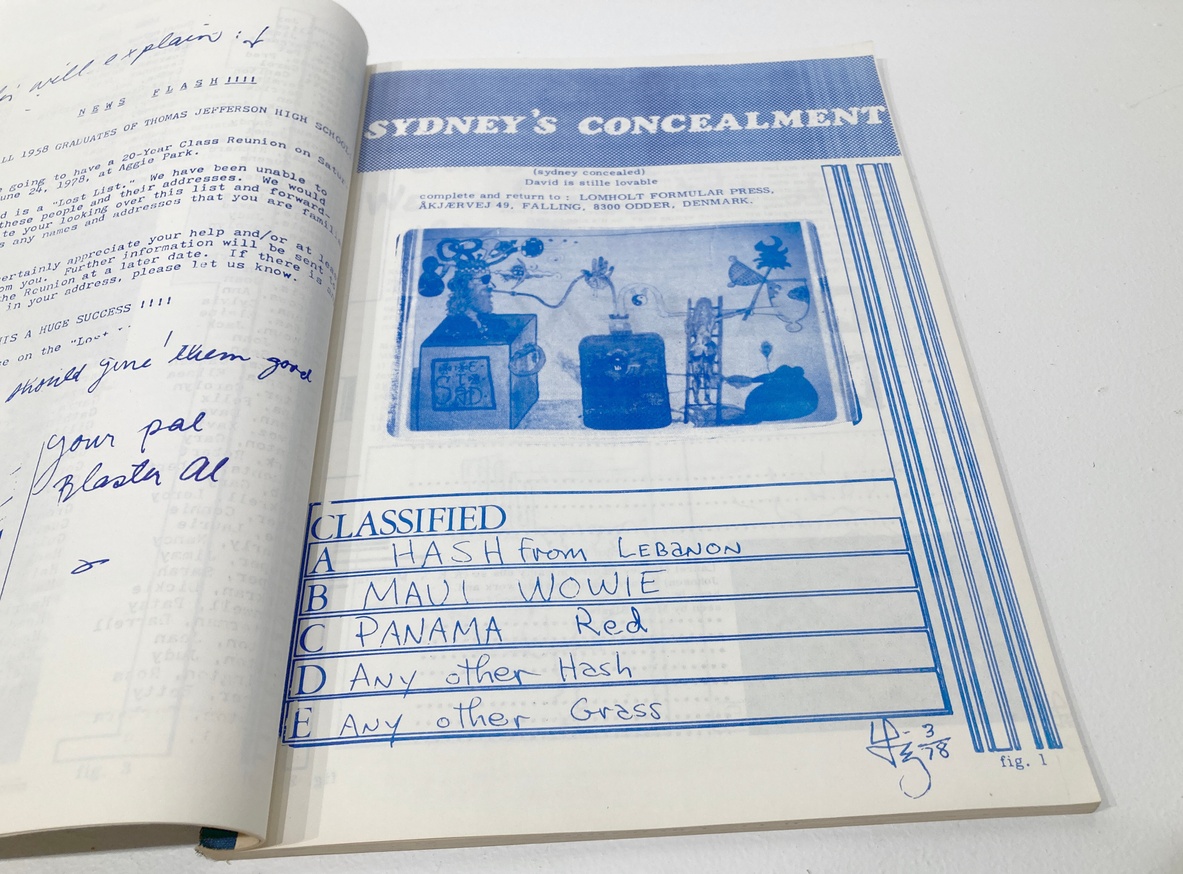 will explain :
NEWS FLASH!!!!
1958 GRADUATES OF THOMAS JEFFERSON HIGH SCHOOL
going to have a 20-Year Class Reunion on
24, 1978, at Aggie Park.
is a "Lost List." We have been unable to
these people and their addresses. We would
your looking over this list and forward-
any names and addresses that you are
appreciate your help and/or at
your. Further information will be sent
the Reunion at a later date. If there is
in your address, please let us know.
IS A HUGE SUCCESS !!!!
on the
should give them good
your pal
Blaster Al
SYDNEY'S CONCEALMENT
(sydney concealed)
David is stille lovable
complete and return to : LOMHOLT FORMULAR PRESS,
ÅKJÆRVEJ 49, FALLING, 8300 ODDER, DENMARK.
CLASSIFIED
A HASH from LEBANON
B MAUI WOWIE
C PANAMA Red
D ANY other Hash
E ANY other Grass
3/78
fig. 1